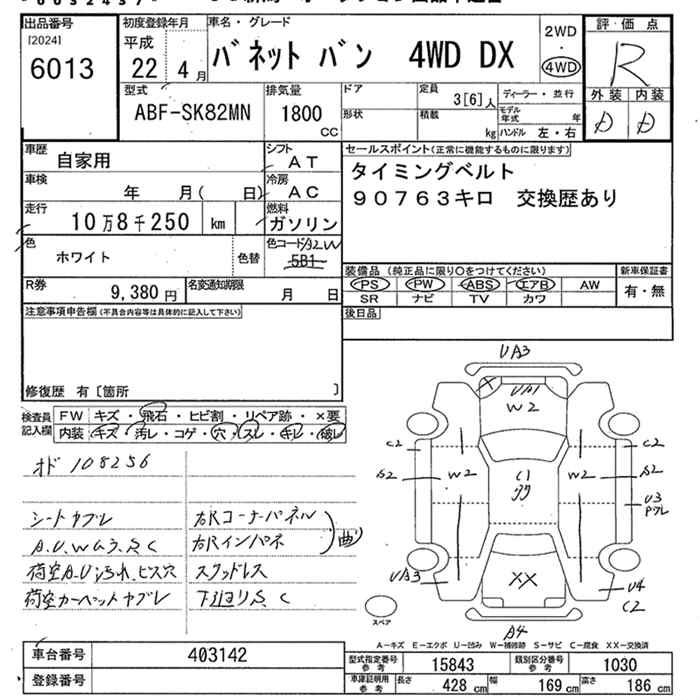 出品番号
[2024]
6013
初度登録年月
平成
22 4月
車名・グレード
バネットバン 4WD DX
2WD
・
4WD
評価点
R
外装 内装
D D
型式
ABF-SK82MN
排気量
1800
CC
ドア
形状
定員
3[6]人
積載
kg
ディーラー・並行
モデル年式 年
ハンドル 左・右
車歴
自家用
シフト
AT
車検
年 月( 日)
冷房
AC
走行
10万8千250 km
燃料
ガソリン
色
ホワイト
色替
色コード A2W
5B1
R券
9,380円
名変通知期限
月 日
セールスポイント(正常に機能するものに限ります)
タイミングベルト
90763キロ 交換歴あり
装備品(純正品に限り○をつけてください)
PS PW ABS エアB AW
SR ナビ TV カワ
新車保証書
有・無
後日品
注意事項申告欄(不具合内容等は具体的に記入して下さい)
修復歴 有〔箇所 〕
検査員記入欄
FW キズ・飛石・ヒビ割・リペア跡・×要
内装 キズ・汚レ・コゲ・穴・スレ・キレ・破レ
オド 108256
シートヤブレ
A.U.Wムラ.S.C
荷室A.U汚れ.ビス穴
荷室カーペットヤブレ
右Rコーナーパネル
右Rインパネ
曲
スタッドレス
下廻りS.C
UA3
UA1
W2
C2
A2
W2
C1
W2
C2
A2
U3
UA3
XX
U4
C2
A4
スペア
A－キズ E－エクボ U－凹み W－補修跡 S－サビ C－腐食 XX－交換済
車台番号
403142
登録番号
型式指定番号参考
15843
類別区分番号参考
1030
車庫証明用参考
長さ 428 cm 幅 169 cm 高さ 186 cm